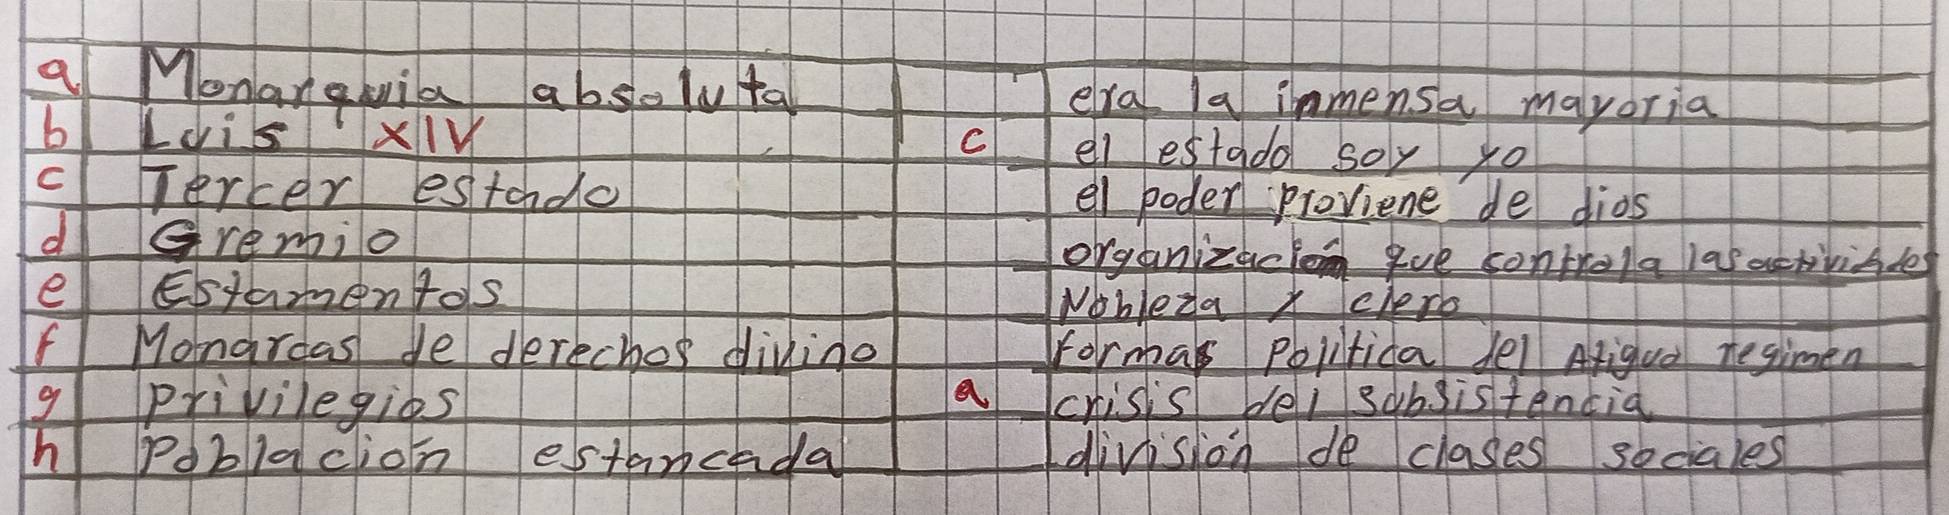 a Monarquia absoluta era la inmensa mayoria
b Luis XIV c el estado soy yo
c Tercer estado el poder proviene de dios
d Gremio organización que controla las actividades
e Estamentos Nobleza y clero
f Monarcas de derechos divino formas Politica del Atiguo regimen
g privilegios a crisis del subsistencia
h Poblacion estancada división de clases sociales